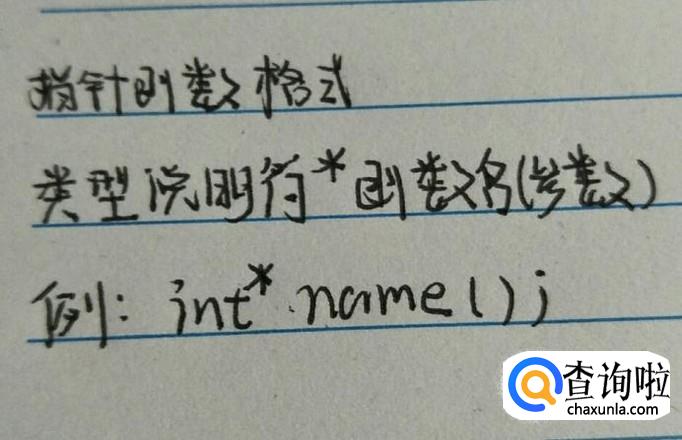 指针函数格式
类型说明符*函数名(参数)
例: int* name();
查询啦
chaxunla.com